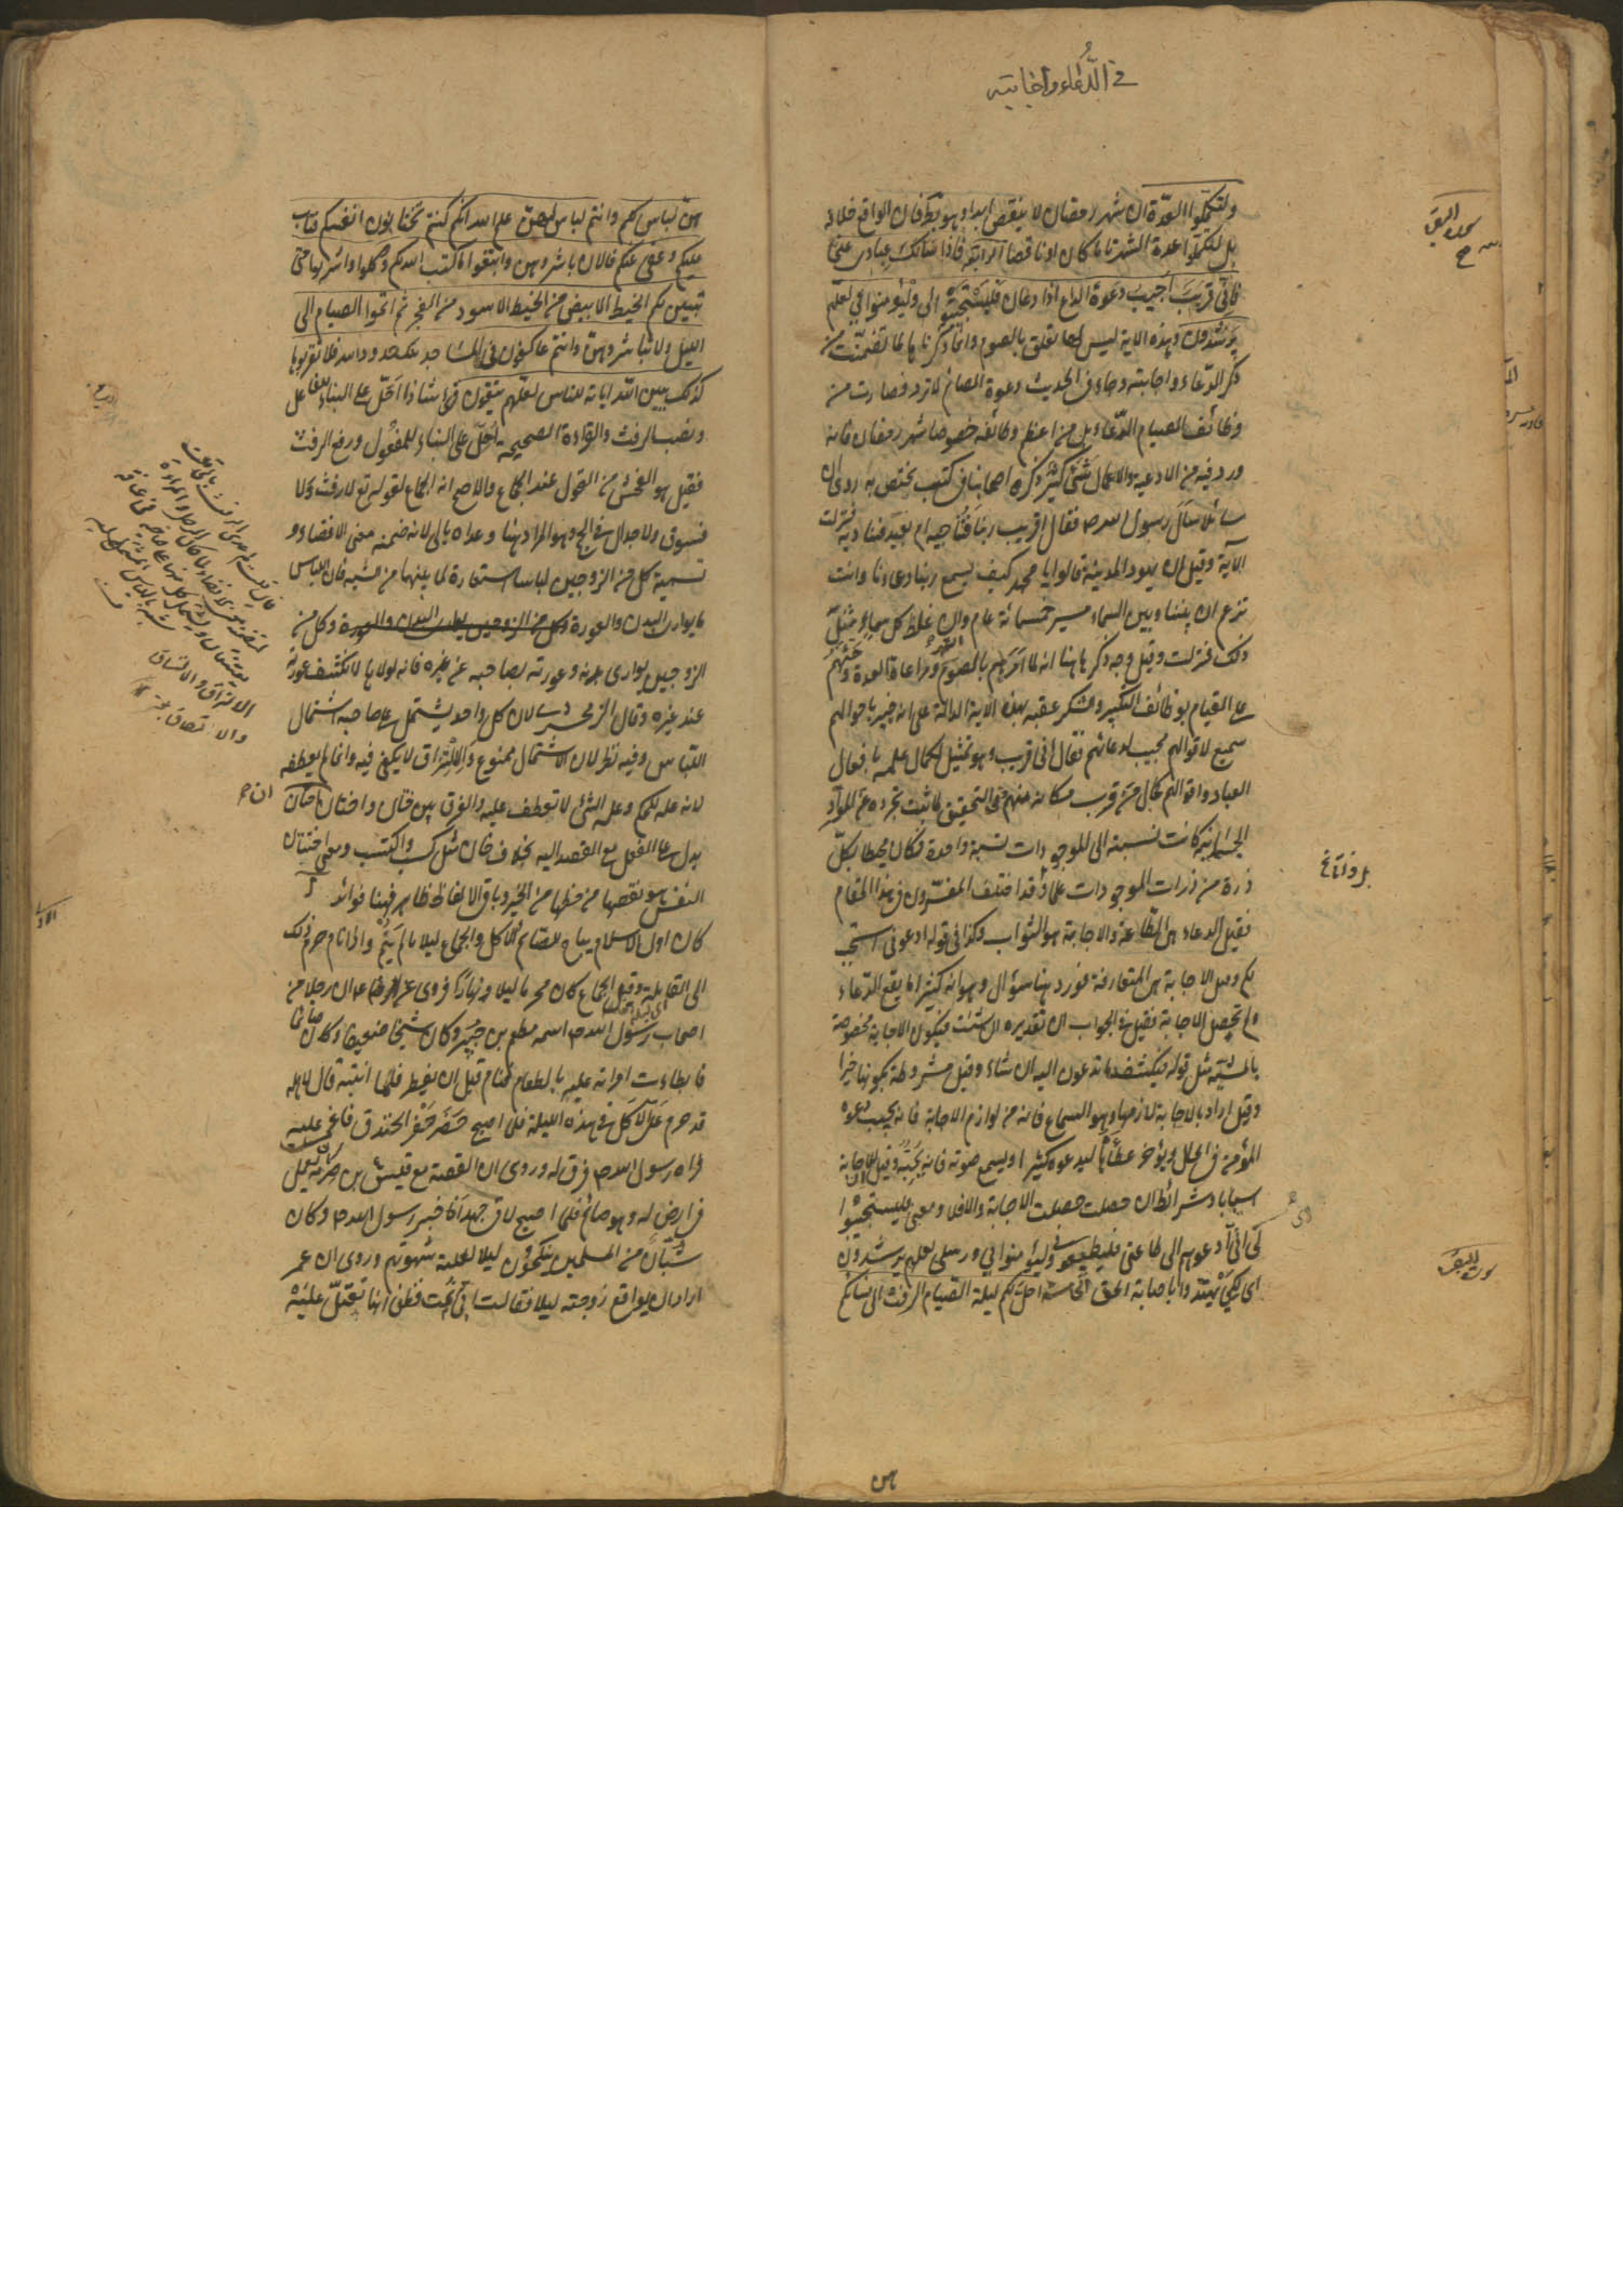 في الدُّعاء واجابته
ولتكملوا العدّة ان شهر رمضان لا ينقص ابدا وهو بط فان الواقع خلافه
بل لتكملوا عدة الشهر تاما كان او ناقصا الرابعة فاذا سألك عبادى عنى
فانّى قريب اُجيب دعوة الداع اذا دعان فليستجيبوا لى وليؤمنوا بى لعلّهم
يرشدون وهذه الاية ليس لها تعلق بالصوم وانما ذكرناها لما تضمنت من
ذكر الدّعاء واجابته وجاء فى الحديث دعوة الصائم لا ترد فصارت من
وظائف الصيام الدّعاء بل من اعظم وظائفه خصوصا شهر رمضان فانه
ورد فيه من الادعية والاعمال شئ كثير ذكره اصحابنا فى كتب تختص به روى ان
سائلا سأل رسول الله ص فقال اقريب ربنا فنناجيه ام بعيد فنناديه فنزلت
الآية وقيل ان يهود المدينة قالوا يا محمد كيف يسمع ربنا دعاءنا وانت
تزعم ان بيننا وبين السماء مسير خمسمائة عام وان غلظ كل سماء مثل
ذلك فنزلت وقيل وجه ذكرها هنا انه لما امرهم بالصوم ومراعاة العدة وحثهم
على القيام بوظائف التكبير والشكر عقبه بهذه الاية الدالة على انه خبير باحوالهم
سميع لاقوالهم مجيب لدعائهم فقال انى قريب وهو تمثيل لكمال علمه بافعال
العباد واقوالهم كحال من قرب مكانه منهم وفى التحقيق لما ثبت تجرده عن المواد
الجسمانية كانت نسبته الى الموجودات نسبة واحدة فكان محيطا بكل
ذرة من ذرات الموجودات علما وقد اختلف المفسّرون فى هذا المقام
فقيل الدعاء هى الطاعة والاجابة هو الثواب وكذا فى قوله ادعونى استجب
لكم وقيل الاجابة هى المتعارفة فورد هنا سؤال وهو انه كثيرا ما يقع الدّعاء
ولم تحصل الاجابة فقيل فى الجواب ان تقديره ان شئت فيكون الاجابة مخصوصة
بالمشيّة مثل قوله فيكشف ما تدعون اليه ان شاء وقيل مشروطة بكونها خيرا
وقيل اراد بالاجابة لازمها وهو السماع فانه من لوازم الاجابة فانه يجيب دعوة
المؤمن فى الحال ويؤخر عطاءه ليدعوه كثيرا ويسمع صوته فانه يحبّه وقيل للاجابة
اسبابا وشرائط ان حصلت حصلت الاجابة والا فلا ومعنى فليستجيبوا
لى انى ادعوهم الى طاعتى فليطيعونى وليؤمنوا بى وبرسلى لعلهم يرشدون
اى لكى يهتدوا باصابة الحق الخامسة احل لكم ليلة الصيام الرفث الى نسائكم
هن
هنّ لباس لكم وانتم لباس لهنّ علم الله انكم كنتم تختانون انفسكم فتاب
عليكم وعفى عنكم فالان باشروهن وابتغوا ما كتب الله لكم وكلوا واشربوا حتى
يتبين لكم الخيط الابيض من الخيط الاسود من الفجر ثم اتموا الصيام الى
الليل ولا تباشروهن وانتم عاكفون فى المساجد تلك حدود الله فلا تقربوها
كذلك يبين الله اياته للناس لعلّهم يتقون قرئ شاذا اَحَلّ على البناء للفاعل
ونصب الرفث والقراءة الصحيحة اُحلّ على البناء للمفعول ورفع الرفث
فقيل هو الفحش من القول عند الجماع والاصح انه الجماع لقوله تع فلا رفث ولا
فسوق ولا جدال فى الحج وهو المراد هنا وعداه بالى لانه ضمنه معنى الافضاء و
تسمية كل من الزوجين لباسا استعارة لما بينهما من مشبه فان اللباس
ما يوارى البدن والعورة وكل من
الزوجين يوارى بدنه وعورته بصاحبه عن غيره فانه لولاها لانكشف عورته
عند غيره وقال الزمخشرى لان كل واحد يشتمل على صاحبه اشتمال
اللباس وفيه نظر لان الاشتمال ممنوع والالتزاق لا يكفى فيه وانما لم يعطفه
لانه علة للحكم وعلة الشئ لا تعطف عليه والفرق بين خان واختان ان اختان
يدل على الفعل مع القصد اليه بخلاف خان مثل كسب واكتسب ومعنى اختيان
النفس هو نقصها من حظها من الخير وباقى الالفاظ ظاهر فهنا فوائد ا
كان اول الاسلام يباح للصائم الاكل والجماع ليلا ما لم ينم واذا نام حرم ذلك
الى القابلة وقيل الجماع كان محرما ليلا ونهارا فروى ان رجلا من
اصحاب رسول الله ص اسمه مطعم بن جبير وكان شيخا ضعيفا وكان صائما
فابطأت امراته عليه بالطعام فنام قبل ان يفطر فلما انتبه قال لاهله
قد حرم علىّ الاكل فى هذه الليلة فلما اصبح حضر حفر الخندق فاغمى عليه
فراه رسول الله ص فرق له وروى ان القصة مع قيس بن صرمة كان يعمل
فى ارض له وهو صائم فلما اصبح لاقى جهدا فاخبر رسول الله ص وكان
شبّان من المسلمين ينكحون ليلا لغلبة شهوتهم وروى ان عمر
اراد ان يواقع زوجته ليلا فقالت انى نمت فظن انها تعتلّ عليه